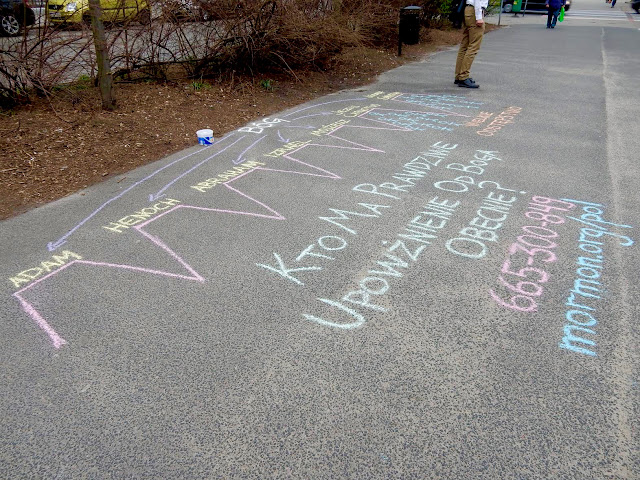 BÓG
ADAM
HENOCH
ABRAHAM
IZRAEL
KTO MA PRAWDZIWIE
UPOWŻNIENIE OD BOGA
OBECNIE?
665-300-849
mormon.org/pol